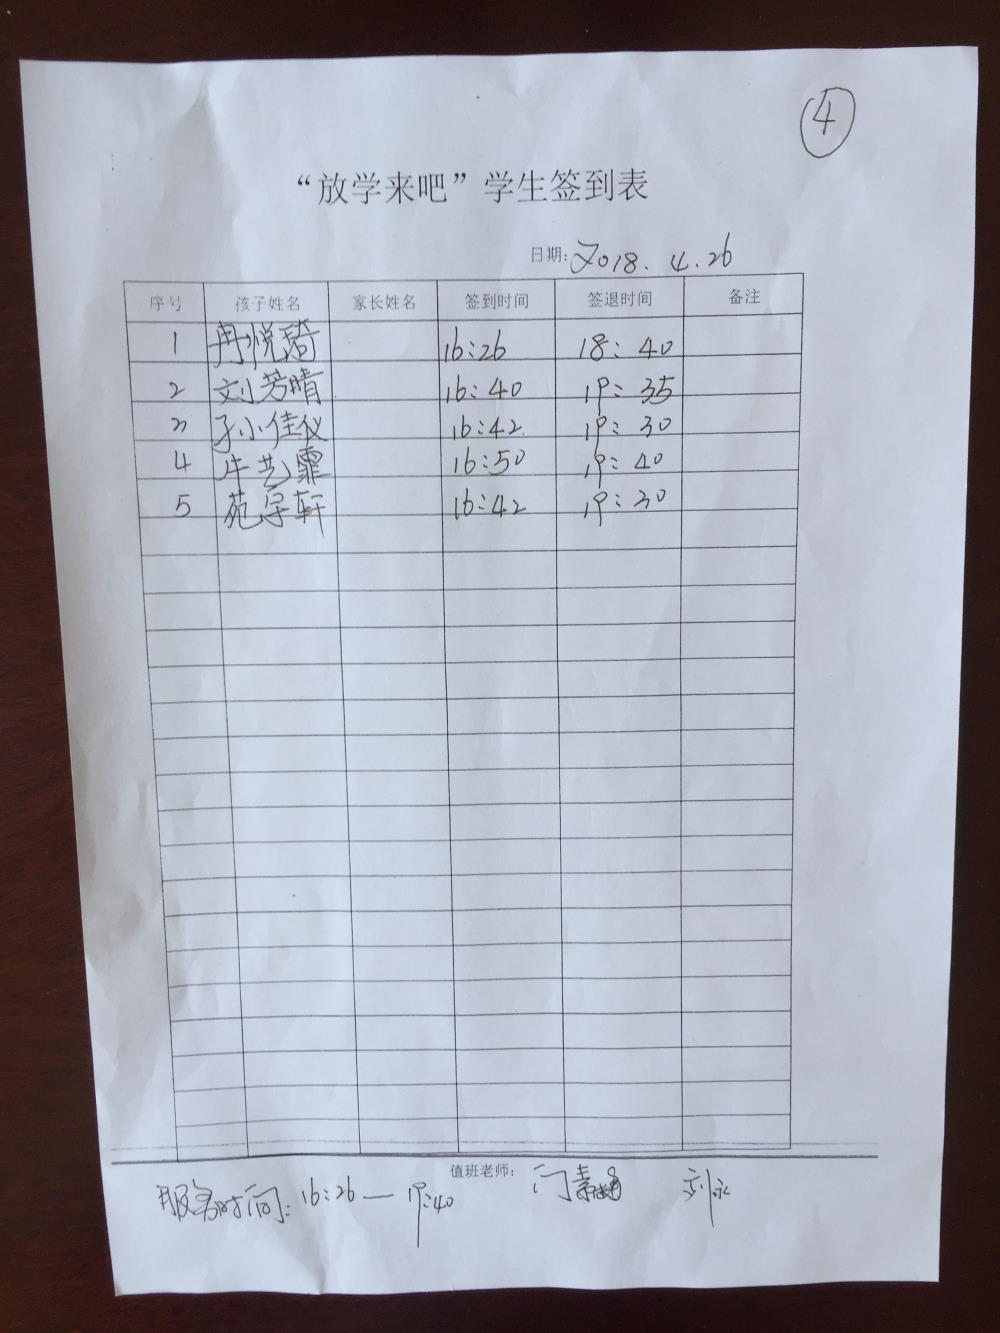 ④
“放学来吧”学生签到表
日期: 2018.4.26
序号 孩子姓名 家长姓名 签到时间 签退时间 备注
1 冉悦琦 16:26 18:40
2 刘芳晴 16:40 19:35
3 孙小佳仪 16:42 19:30
4 牛艺霏 16:50 19:40
5 苑宇轩 16:42 19:30
值班老师: 闫素 刘永
服务时间: 16:26—19:40